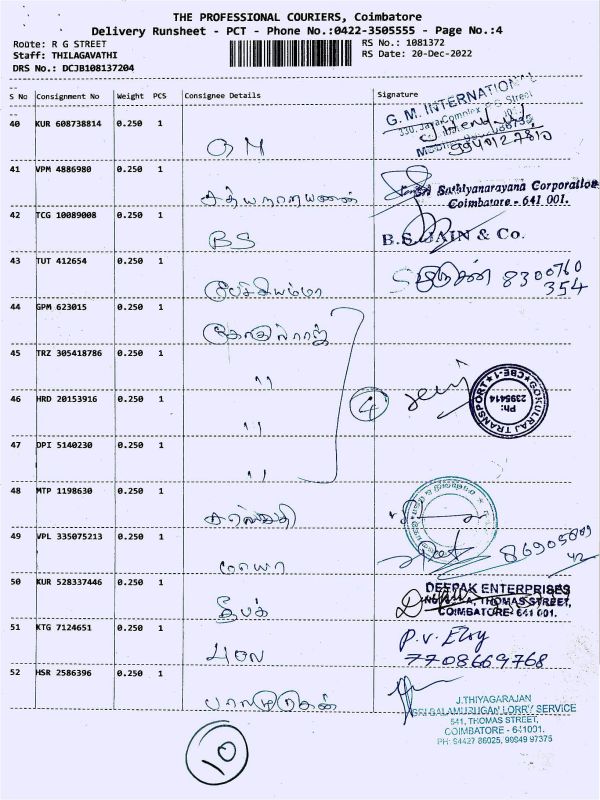 THE PROFESSIONAL COURIERS, Coimbatore
Delivery Runsheet - PCT - Phone No.:0422-3505555 - Page No.:4
Route: R G STREET
RS No.: 1081372
Staff: THILAGAVATHI
RS Date: 20-Dec-2022
DRS No.: DCJB108137204
S No Consignment No Weight PCS Consignee Details Signature
40 KUR 608738814 0.250 1 GM
G. M. INTERNATIONAL
9940127810
41 VPM 4886980 0.250 1 சத்யநாராயணன்
Sri Sathiyanarayana Corporation
Coimbatore - 641 001.
42 TCG 10089008 0.250 1 BS
B.S. JAIN & Co.
43 TUT 412654 0.250 1 பேச்சியம்மா
8300760
354
44 GPM 623015 0.250 1 கோகுல்ராஜ்
45 TRZ 305418786 0.250 1 ''
46 HRD 20153916 0.250 1 ''
4
GOKULRAJ TRANSPORT ★ CBE-1 ★
Ph:
2395414
47 DPI 5140230 0.250 1 ''
48 MTP 1198630 0.250 1
49 VPL 335075213 0.250 1 மாயா
50 KUR 528337446 0.250 1 தீபக்
DEEPAK ENTERPRISES
THOMAS STREET,
COIMBATORE- 641 001.
51 KTG 7124651 0.250 1
P.V.
7708669768
52 HSR 2586396 0.250 1 பாலமுருகன்
J.THIYAGARAJAN
SRI BALAMURUGAN LORRY SERVICE
541, THOMAS STREET,
COIMBATORE - 641001.
PH: 94427 86025, 90949 97375
10